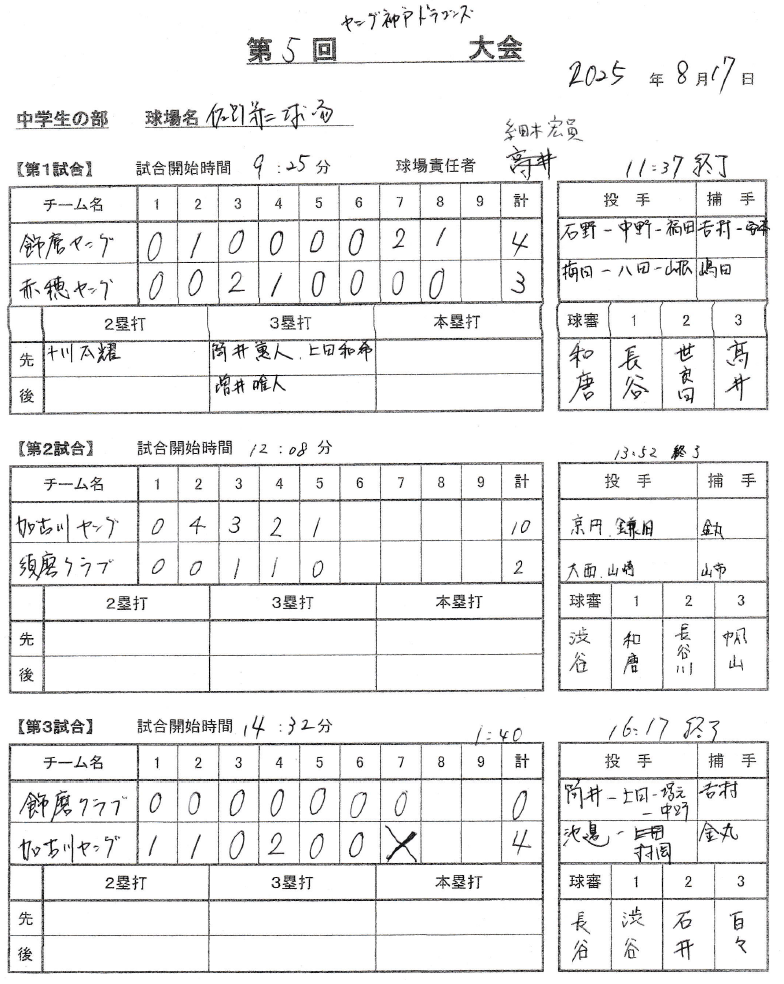 ヤング神戸ドラゴンズ
第 5 回 大会
2025 年 8 月 17 日
中学生の部 球場名 佐野第二球場
細木宏員
【第1試合】 試合開始時間 9:25分 球場責任者 高井 11:37 終了
チーム名 1 2 3 4 5 6 7 8 9 計 投手 捕手
飾磨ヤング 0 1 0 0 0 0 2 1 4 石野-中野-福田 吉村-
赤穂ヤング 0 0 2 1 0 0 0 0 3 梅田-八田-山根 嶋田
2塁打 3塁打 本塁打 球審 1 2 3
先 筒井寛人、上田和希 和唐 長谷 世良田 高井
後 増井唯人
【第2試合】 試合開始時間 12:08分 13:52 終了
チーム名 1 2 3 4 5 6 7 8 9 計 投手 捕手
加古川ヤング 0 4 3 2 1 10 京円、鎌田 金丸
須磨クラブ 0 0 1 1 0 2 大西、山崎 山市
2塁打 3塁打 本塁打 球審 1 2 3
先 渋谷 和唐 長谷川 帆山
後
【第3試合】 試合開始時間 14:32分 1:40 16:17 終了
チーム名 1 2 3 4 5 6 7 8 9 計 投手 捕手
飾磨クラブ 0 0 0 0 0 0 0 0 筒井-上田-塚元-中野 吉村
加古川ヤング 1 1 0 2 0 0 X 4 池邉-村岡 金丸
2塁打 3塁打 本塁打 球審 1 2 3
先 長谷 渋谷 石井 百々
後